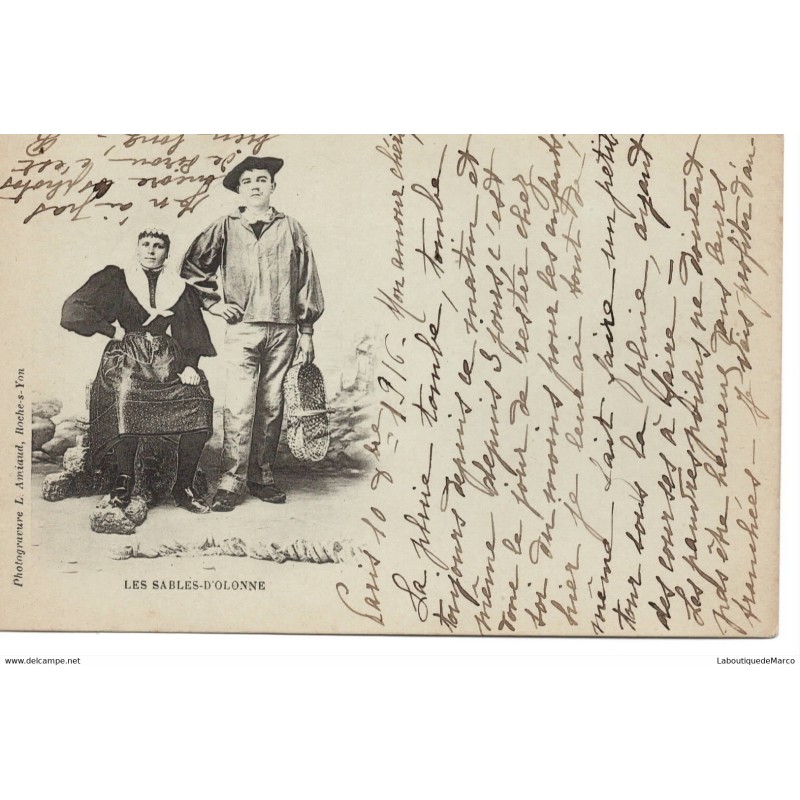 Paris 10 Xbre 1916 - Mon amour chéri
La pluie tombe, tombe, tombe
toujours depuis ce matin et
même depuis 3 jours, c'est
donc le jour de rester chez
soi du moins pour les enfants,
hier je leur ai tout de
même fait faire un petit
tour sous la pluie, ayant
des courses à faire -
Les pauvres poilus ne doivent
pas être heureux dans leurs
tranchées - Je vais profiter d'au-
J'en n'ai pas
encore de photos
de c'est
bien long -
Photogravure L. Amiaud, Roche-s-Yon
LES SABLES-D'OLONNE
www.delcampe.net
LaboutiquedeMarco